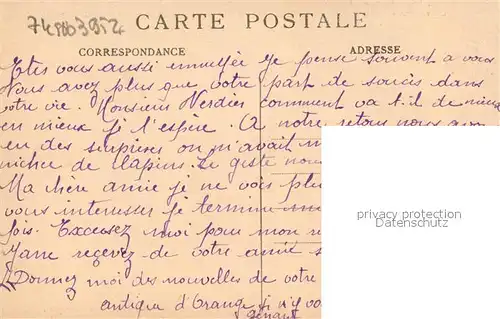 CARTE POSTALE
CORRESPONDANCE
ADRESSE
Etes vous aussi ennuyée je pense souvent a vous
Vous avez plus que votre part de soucis dans
votre vie. Monsieur Verdier comment va t-il de mieux
en mieux je l'espère. A notre retour nous
eu des surprises on m'avait
nichée de lapins. Le geste nous
Ma chère amie je ne vois plus
vous interesser je termine
fois. Excusez moi pour mon
recevez de votre amie
Donnez moi des nouvelles de votre
antique d'Orange je n'y
privacy protection
www.oldthing.de